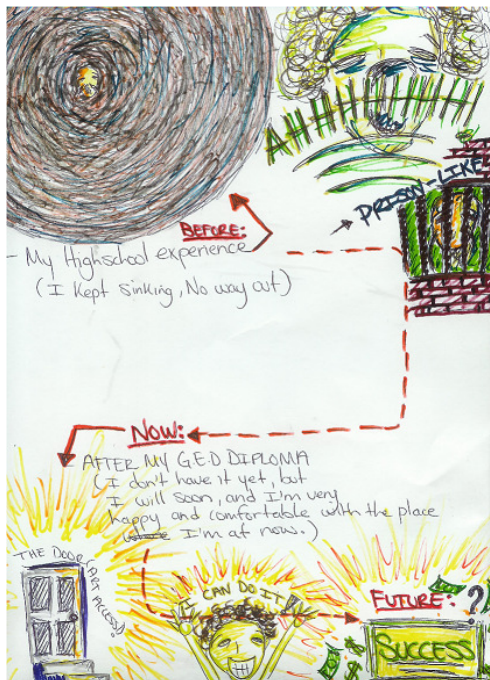 AHHHHHHHHH
PRISON-LIKE
BEFORE:
- My Highschool experience
(I kept sinking, No way out)
NOW:
AFTER MY G.E.D DIPLOMA
(I don't have it yet, but
I will soon, and I'm very
happy and comfortable with the place
I'm at now.)
THE DOOR (ART ACCESS!)
I CAN DO IT!
FUTURE: ?
SUCCESS